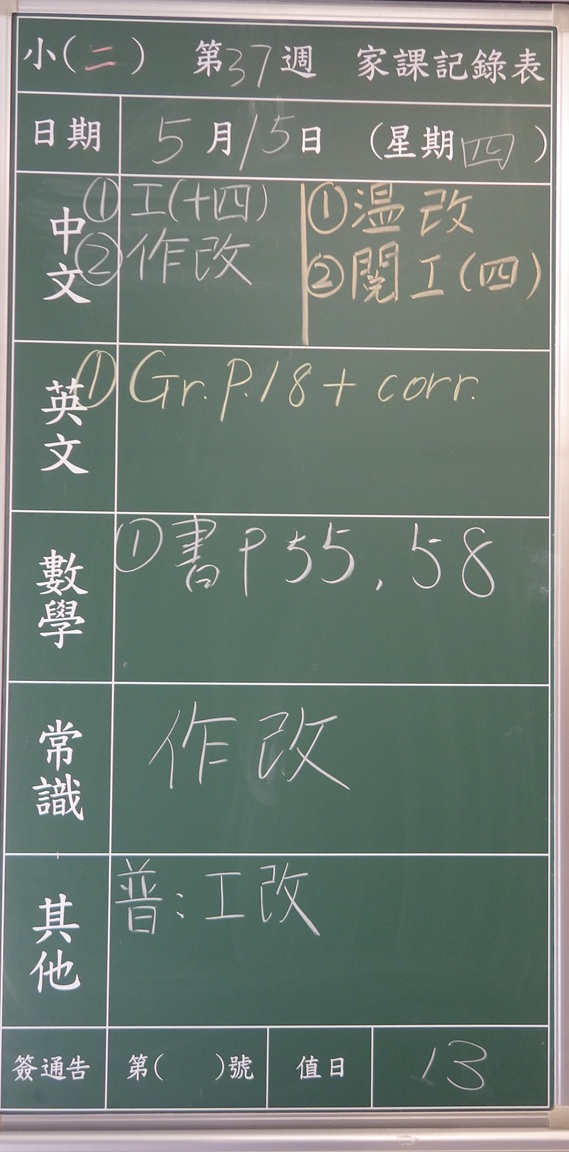 小(二) 第37週 家課記錄表
日期 5月15日 (星期四)
中文
①工(十四)
②作改
①温改
②閱工(四)
英文
①Gr. P.18 + corr.
數學
①書P55, 58
常識
作改
其他
普:工改
簽通告 第( )號 值日 13